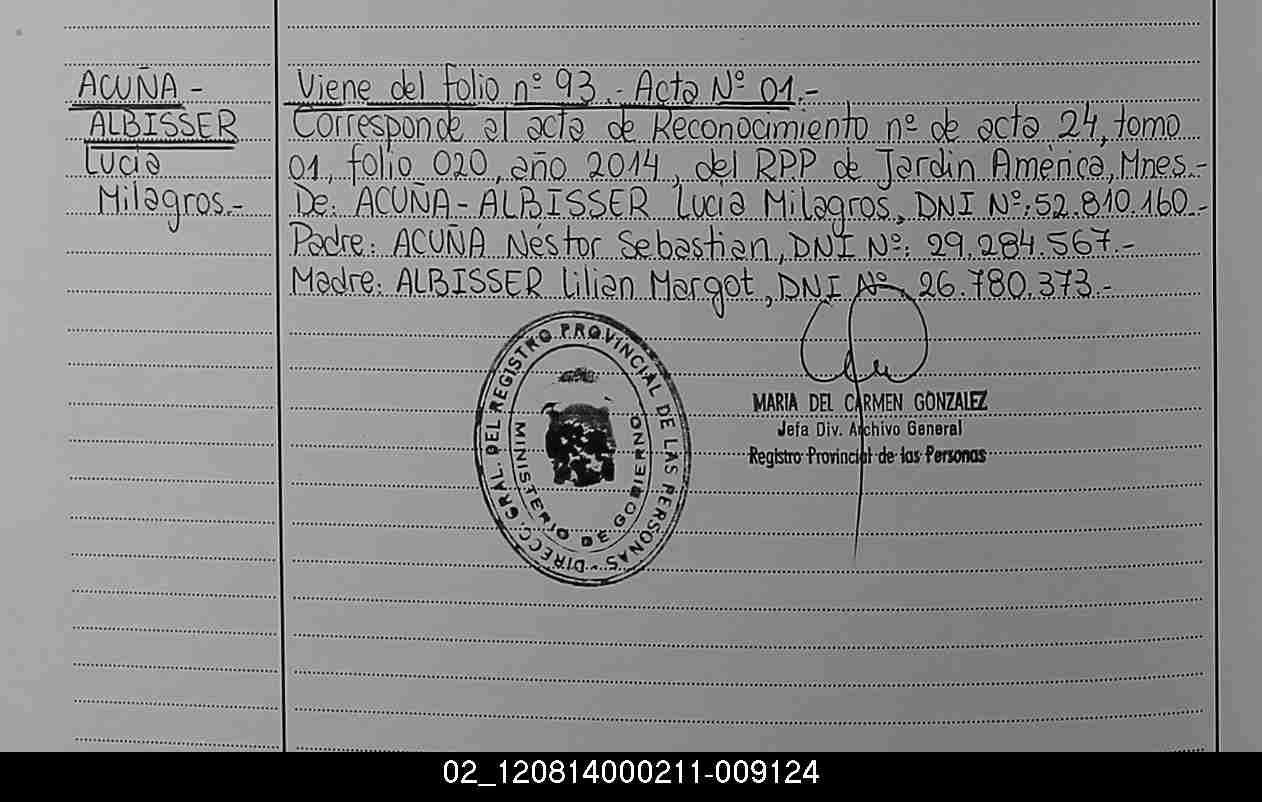 ACUÑA -
ALBISSER
Lucia
Milagros.-
Viene del folio nº 93.- Acta Nº 01.-
Corresponde al acta de Reconocimiento nº de acta 24, tomo
01, folio 020, año 2014, del RPP de Jardin América, Mnes.-
De: ACUÑA - ALBISSER Lucia Milagros, DNI Nº: 52.810.160.-
Padre: ACUÑA Néstor Sebastian, DNI Nº: 29.284.567.-
Madre: ALBISSER Lilian Margot, DNI Nº: 26.780.373.-
DIRECC. GRAL. DEL REGISTRO PROVINCIAL DE LAS PERSONAS -
MINISTERIO DE GOBIERNO
MARIA DEL CARMEN GONZALEZ
Jefa Div. Archivo General
Registro Provincial de las Personas
02_120814000211-009124